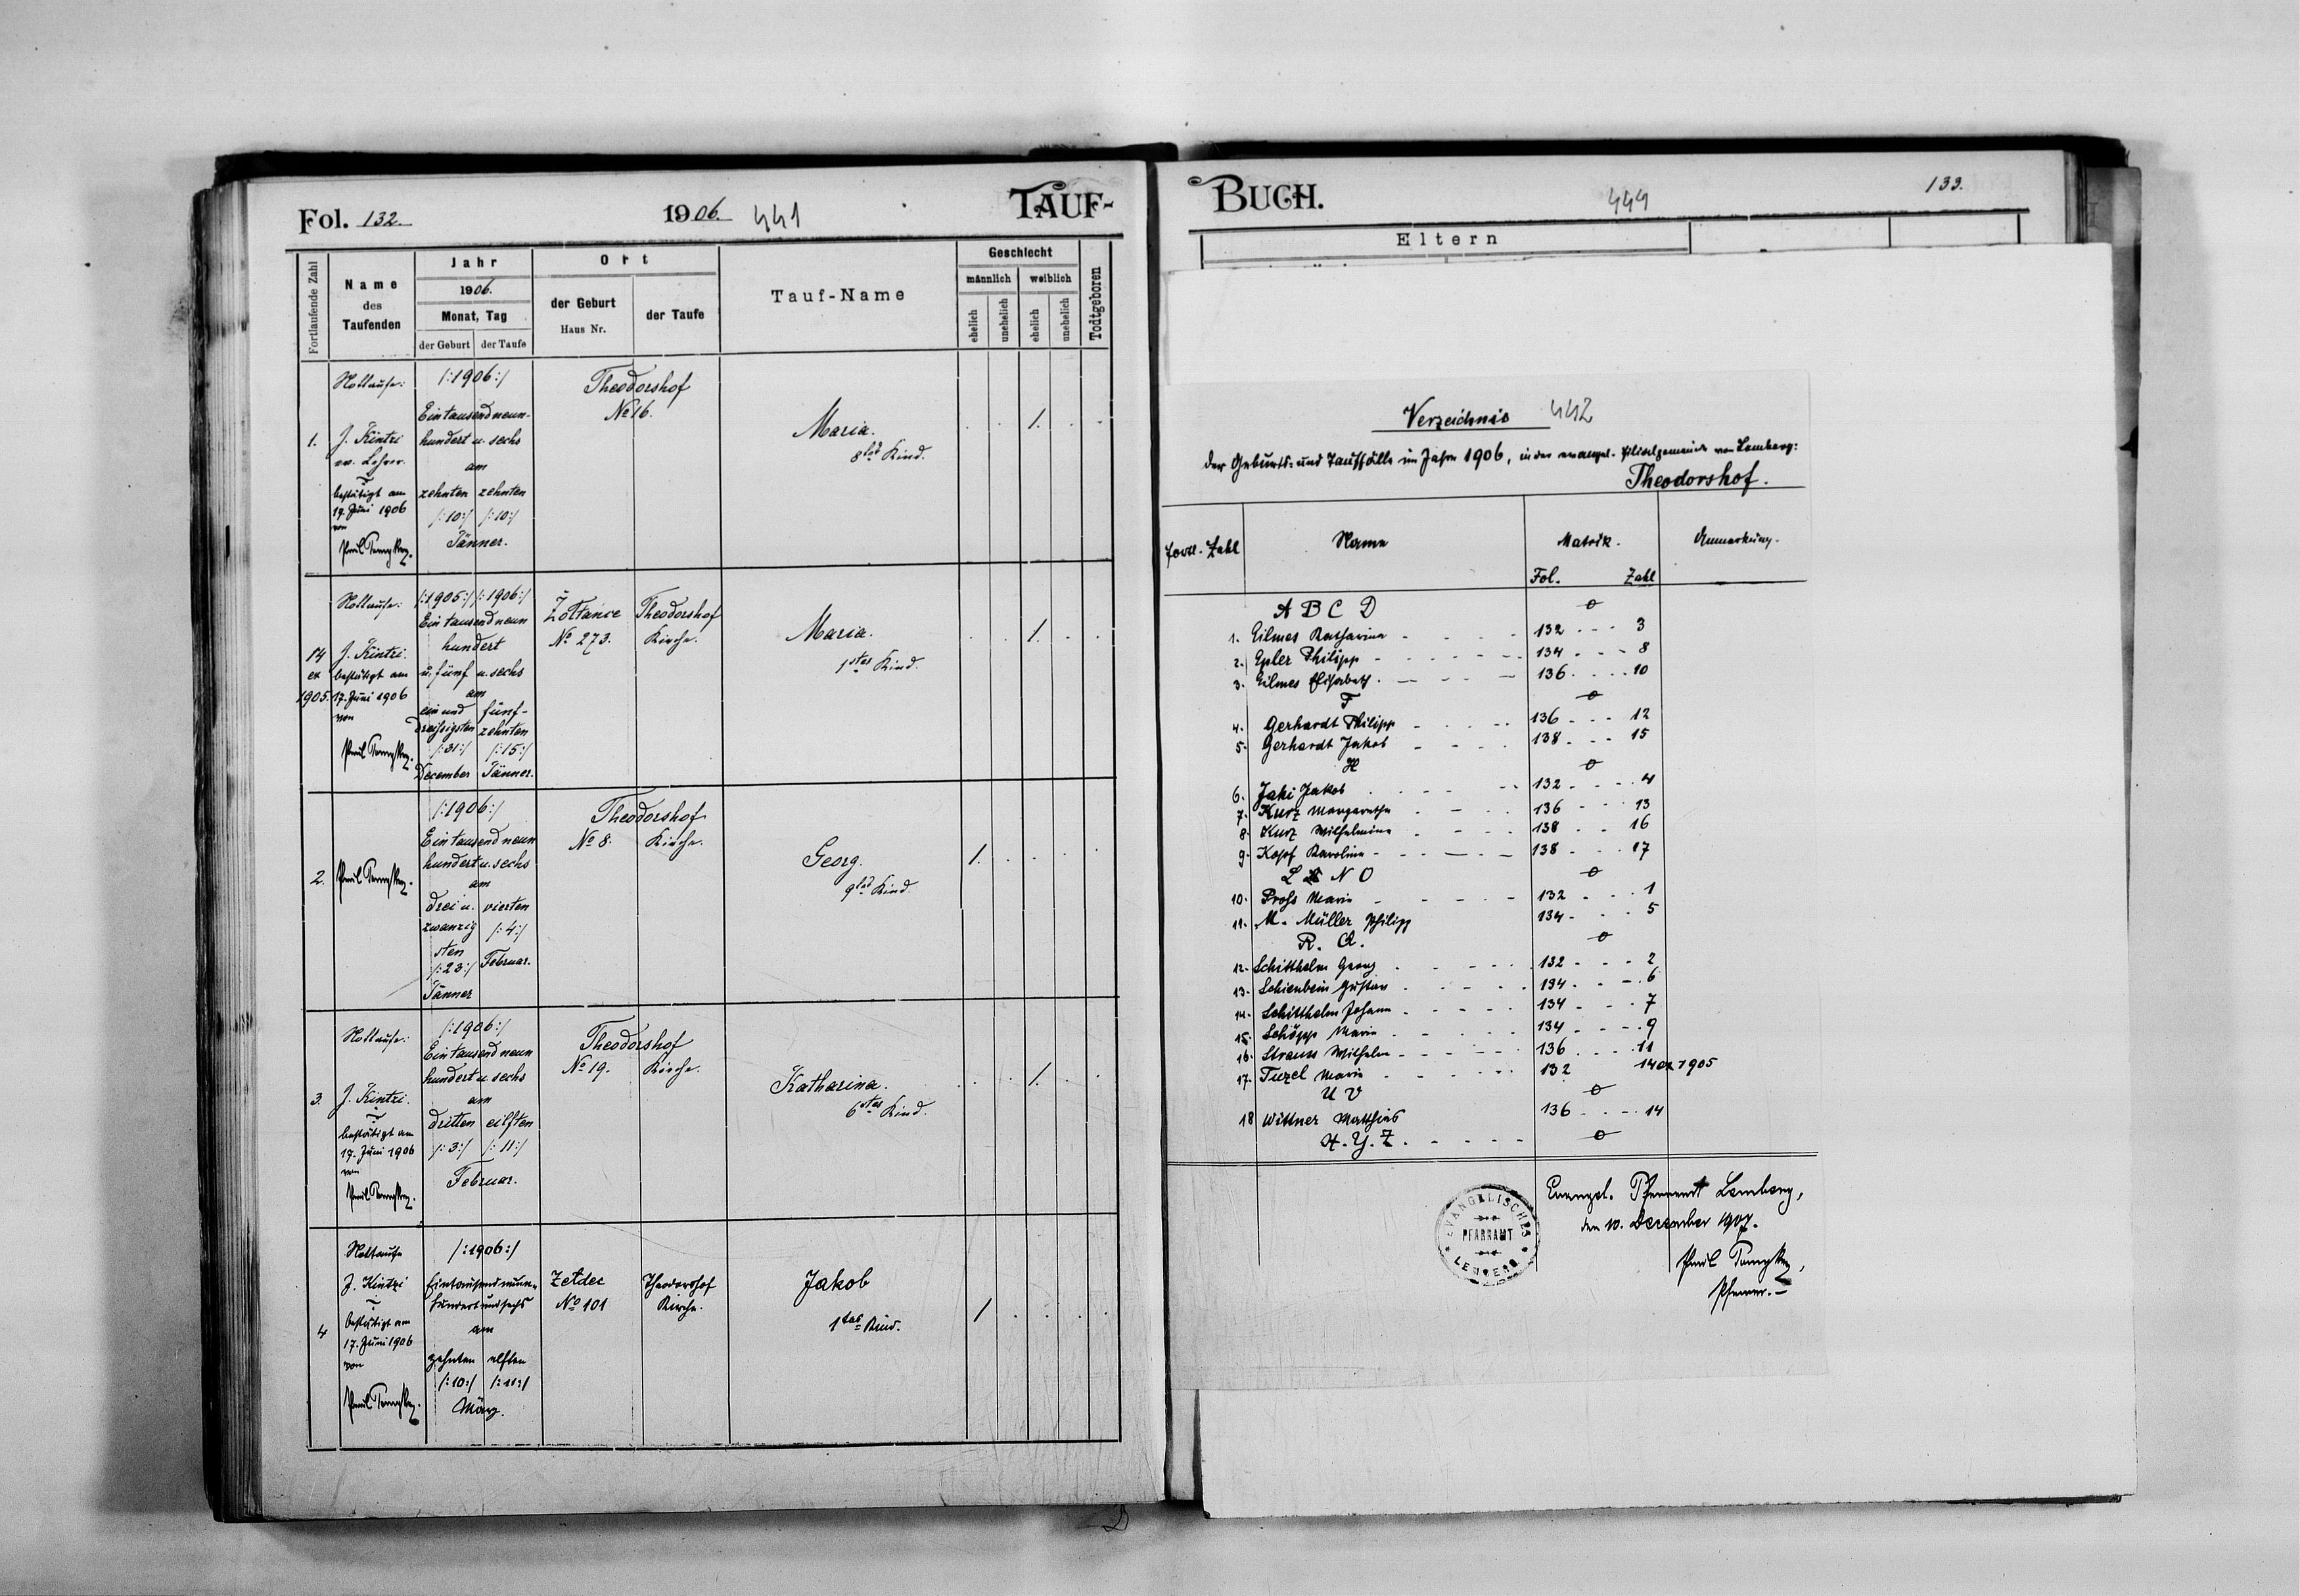 Fol. 132. 1906. 441 TAUF-
Fortlaufende Zahl
Name des Taufenden
Jahr
1906.
Monat, Tag
der Geburt der Taufe
Ort
der Geburt
Haus Nr.
der Taufe
Tauf-Name
Geschlecht
männlich weiblich
ehelich unehelich ehelich unehelich
Todtgeboren
1.
Nottaufe:
J. Kintzi
ev. Lehrer
bestätigt am
17. Juni 1906
von
/:1906:/
Ein tausend neun-
hundert u. sechs
am
zehnten zehnten
/:10:/ /:10:/
Jänner.
Theodorshof
No 16.
Maria.
8tes Kind.
1.
14
ex
1905.
Nottaufe:
J. Kintzi.
bestätigt am
17. Juni 1906
von
/:1905:/ /:1906:/
Ein tausend neun
hundert
u. fünf u. sechs
am
ein und fünf-
dreißigsten zehnten
/:31:/ /:15:/
December Jänner.
Żółtańce
No 273.
Theodorshof
Kirche.
Maria.
1stes Kind.
1.
2.
/:1906:/
Ein tausend neun
hundert u. sechs
am
drei u. vierten
zwanzig /:4:/
sten
/:23:/ Februar.
Jänner
Theodorshof
No 8. Kirche.
Georg.
9tes Kind.
1.
3.
Nottaufe:
J. Kintzi.
bestätigt am
17. Juni 1906
von
/:1906:/
Ein tausend neun
hundert u. sechs
am
dritten eilften
/:3:/ /:11:/
Februar.
Theodorshof
No 19. Kirche.
Katharina.
6stes Kind.
1.
4
Nottaufe
J. Kintzi
bestätigt am
17. Juni 1906
von
/:1906:/
Eintausendneun-
hundertundsechs
am
zehnten elften
/:10:/ /:11:/
März.
Zeldec
No 101
Theodorshof
Kirche.
Jakob
1tes Kind.
1
BUCH. 444 133.
Eltern
Verzeichnis 442
der Geburts- und Tauffälle im Jahre 1906, in der evangel. Filialgemeinde von Lemberg:
Theodorshof.
Fortl. Zahl Name Matrik. Anmerkung.
Fol. Zahl
A B C D 0
1. Eilmes Katharina 132 3
2. Epler Philipp 134 8
3. Eilmes Elisabeth 136 10
F 0
4. Gerhardt Philipp 136 12
5. Gerhardt Jakob 138 15
H 0
6. Jaki Jakob 132 4
7. Kurz Margaretha 136 13
8. Kurz Wilhelmine 138 16
9. Kopf Karoline 138 17
L N O 0
10. Pross Marie 132 1
11. M. Müller Philipp 134 5
R. Q. 0
12. Schitthelm Georg 132 2
13. Schienbein Gustav 134 6
14. Schitthelm Johann 134 7
15. Schöpp Marie 134 9
16. Strauss Wilhelm 136 11
17. Tuzel Marie 132 14 ex 1905
U V 0
18 Wittner Matthias 136 14
X. Y. Z. 0
EVANGELISCHES
PFARRAMT
LEMBERG
Evangel. Pfarramt Lemberg,
den 10. December 1907.
Pfarrer.